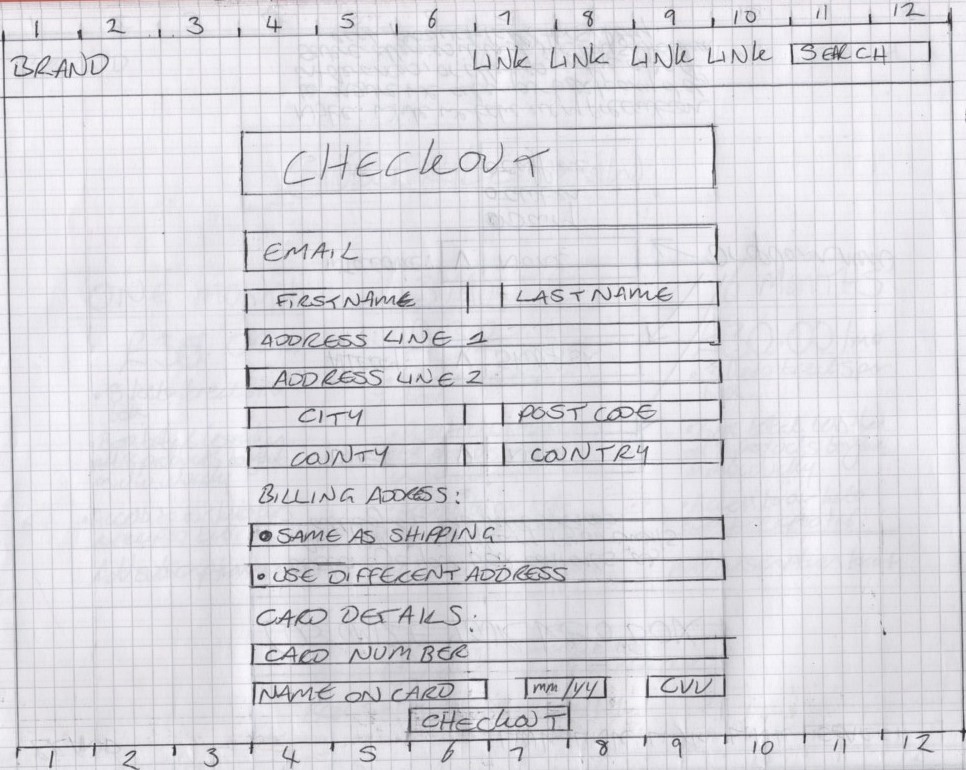 1 2 3 4 5 6 7 8 9 10 11 12
BRAND LINK LINK LINK LINK SEARCH
CHECKOUT
EMAIL
FIRSTNAME LASTNAME
ADDRESS LINE 1
ADDRESS LINE 2
CITY POSTCODE
COUNTY COUNTRY
BILLING ADDRESS:
SAME AS SHIPPING
USE DIFFERENT ADDRESS
CARD DETAILS:
CARD NUMBER
NAME ON CARD mm/yy CVV
CHECKOUT
1 2 3 4 5 6 7 8 9 10 11 12